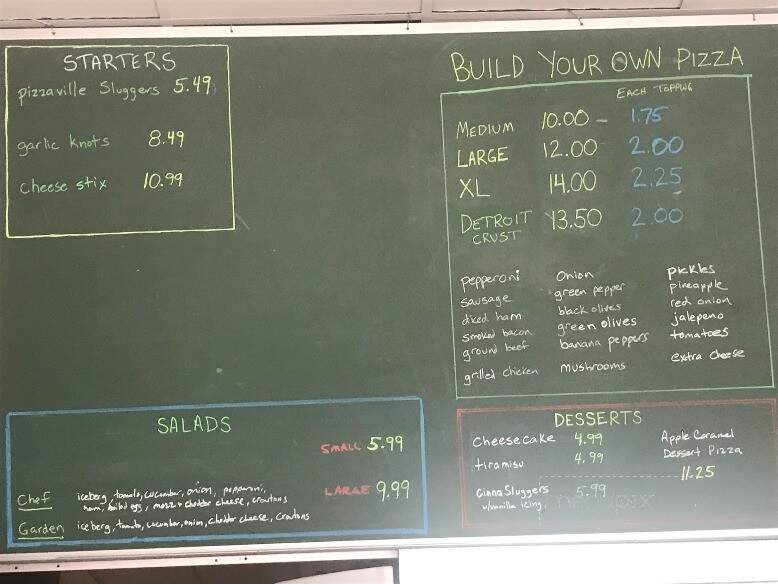 STARTERS
pizzaville Sluggers 5.49
garlic knots 8.49
cheese stix 10.99
BUILD YOUR OWN PIZZA
EACH TOPPING
MEDIUM 10.00 - 1.75
LARGE 12.00 2.00
XL 14.00 2.25
DETROIT CRUST 13.50 2.00
pepperoni Onion pickles
sausage green pepper pineapple
diced ham black olives red onion
smoked bacon green olives jalepeno
ground beef banana peppers tomatoes
grilled chicken mushrooms extra cheese
SALADS
SMALL 5.99
LARGE 9.99
Chef iceberg, tomato, cucumber, onion, pepperoni,
ham, boiled egg, mozz & cheddar cheese, croutons
Garden iceberg, tomato, cucumber, onion, cheddar cheese, croutons
DESSERTS
Cheesecake 4.99
tiramisu 4.99
Cinna Sluggers 5.99
w/vanilla icing
Apple Caramel
Dessert Pizza
11.25